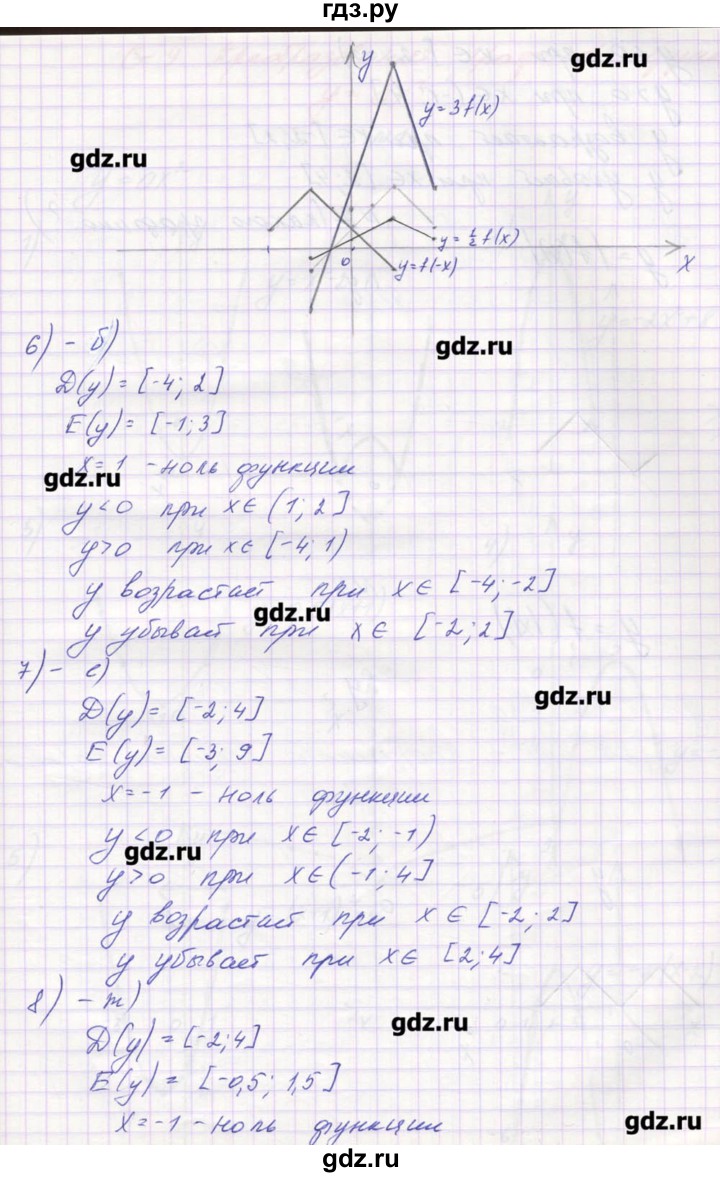 гдз.ру
gdz.ru
y
y=3f(x)
gdz.ru
y=½f(x)
0
y=f(-x)
x
gdz.ru
6) - б)
D(y) = [-4; 2]
E(y) = [-1; 3]
x=1 - ноль функции
gdz.ru
y<0 при x∈(1; 2]
y>0 при x∈[-4; 1)
y возрастает при x∈ [-4; -2]
gdz.ru
y убывает при x∈ [-2; 2]
7) - е)
gdz.ru
D(y) = [-2; 4]
E(y) = [-3; 9]
x=-1 - ноль функции
y<0 при x∈[-2; -1)
gdz.ru
y>0 при x∈(-1; 4]
y возрастает при x∈[-2; 2]
y убывает при x∈ [2; 4]
8) - т)
gdz.ru
D(y) = [-2; 4]
E(y) = [-0,5; 1,5]
x=-1 - ноль функции
gdz.ru
gdz.ru